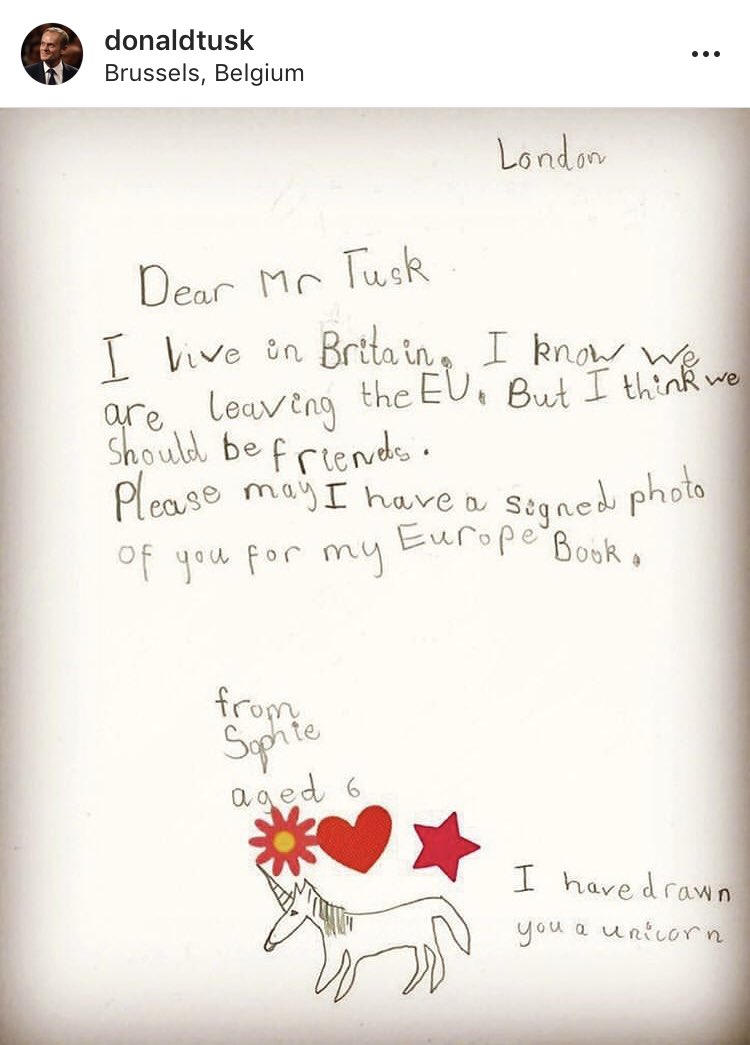 donaldtusk
Brussels, Belgium
London
Dear Mr Tusk
I live in Britain. I know we
are leaving the EU. But I think we
should be friends.
Please may I have a signed photo
of you for my Europe Book.
from
Sophie
aged 6
I have drawn
you a unicorn